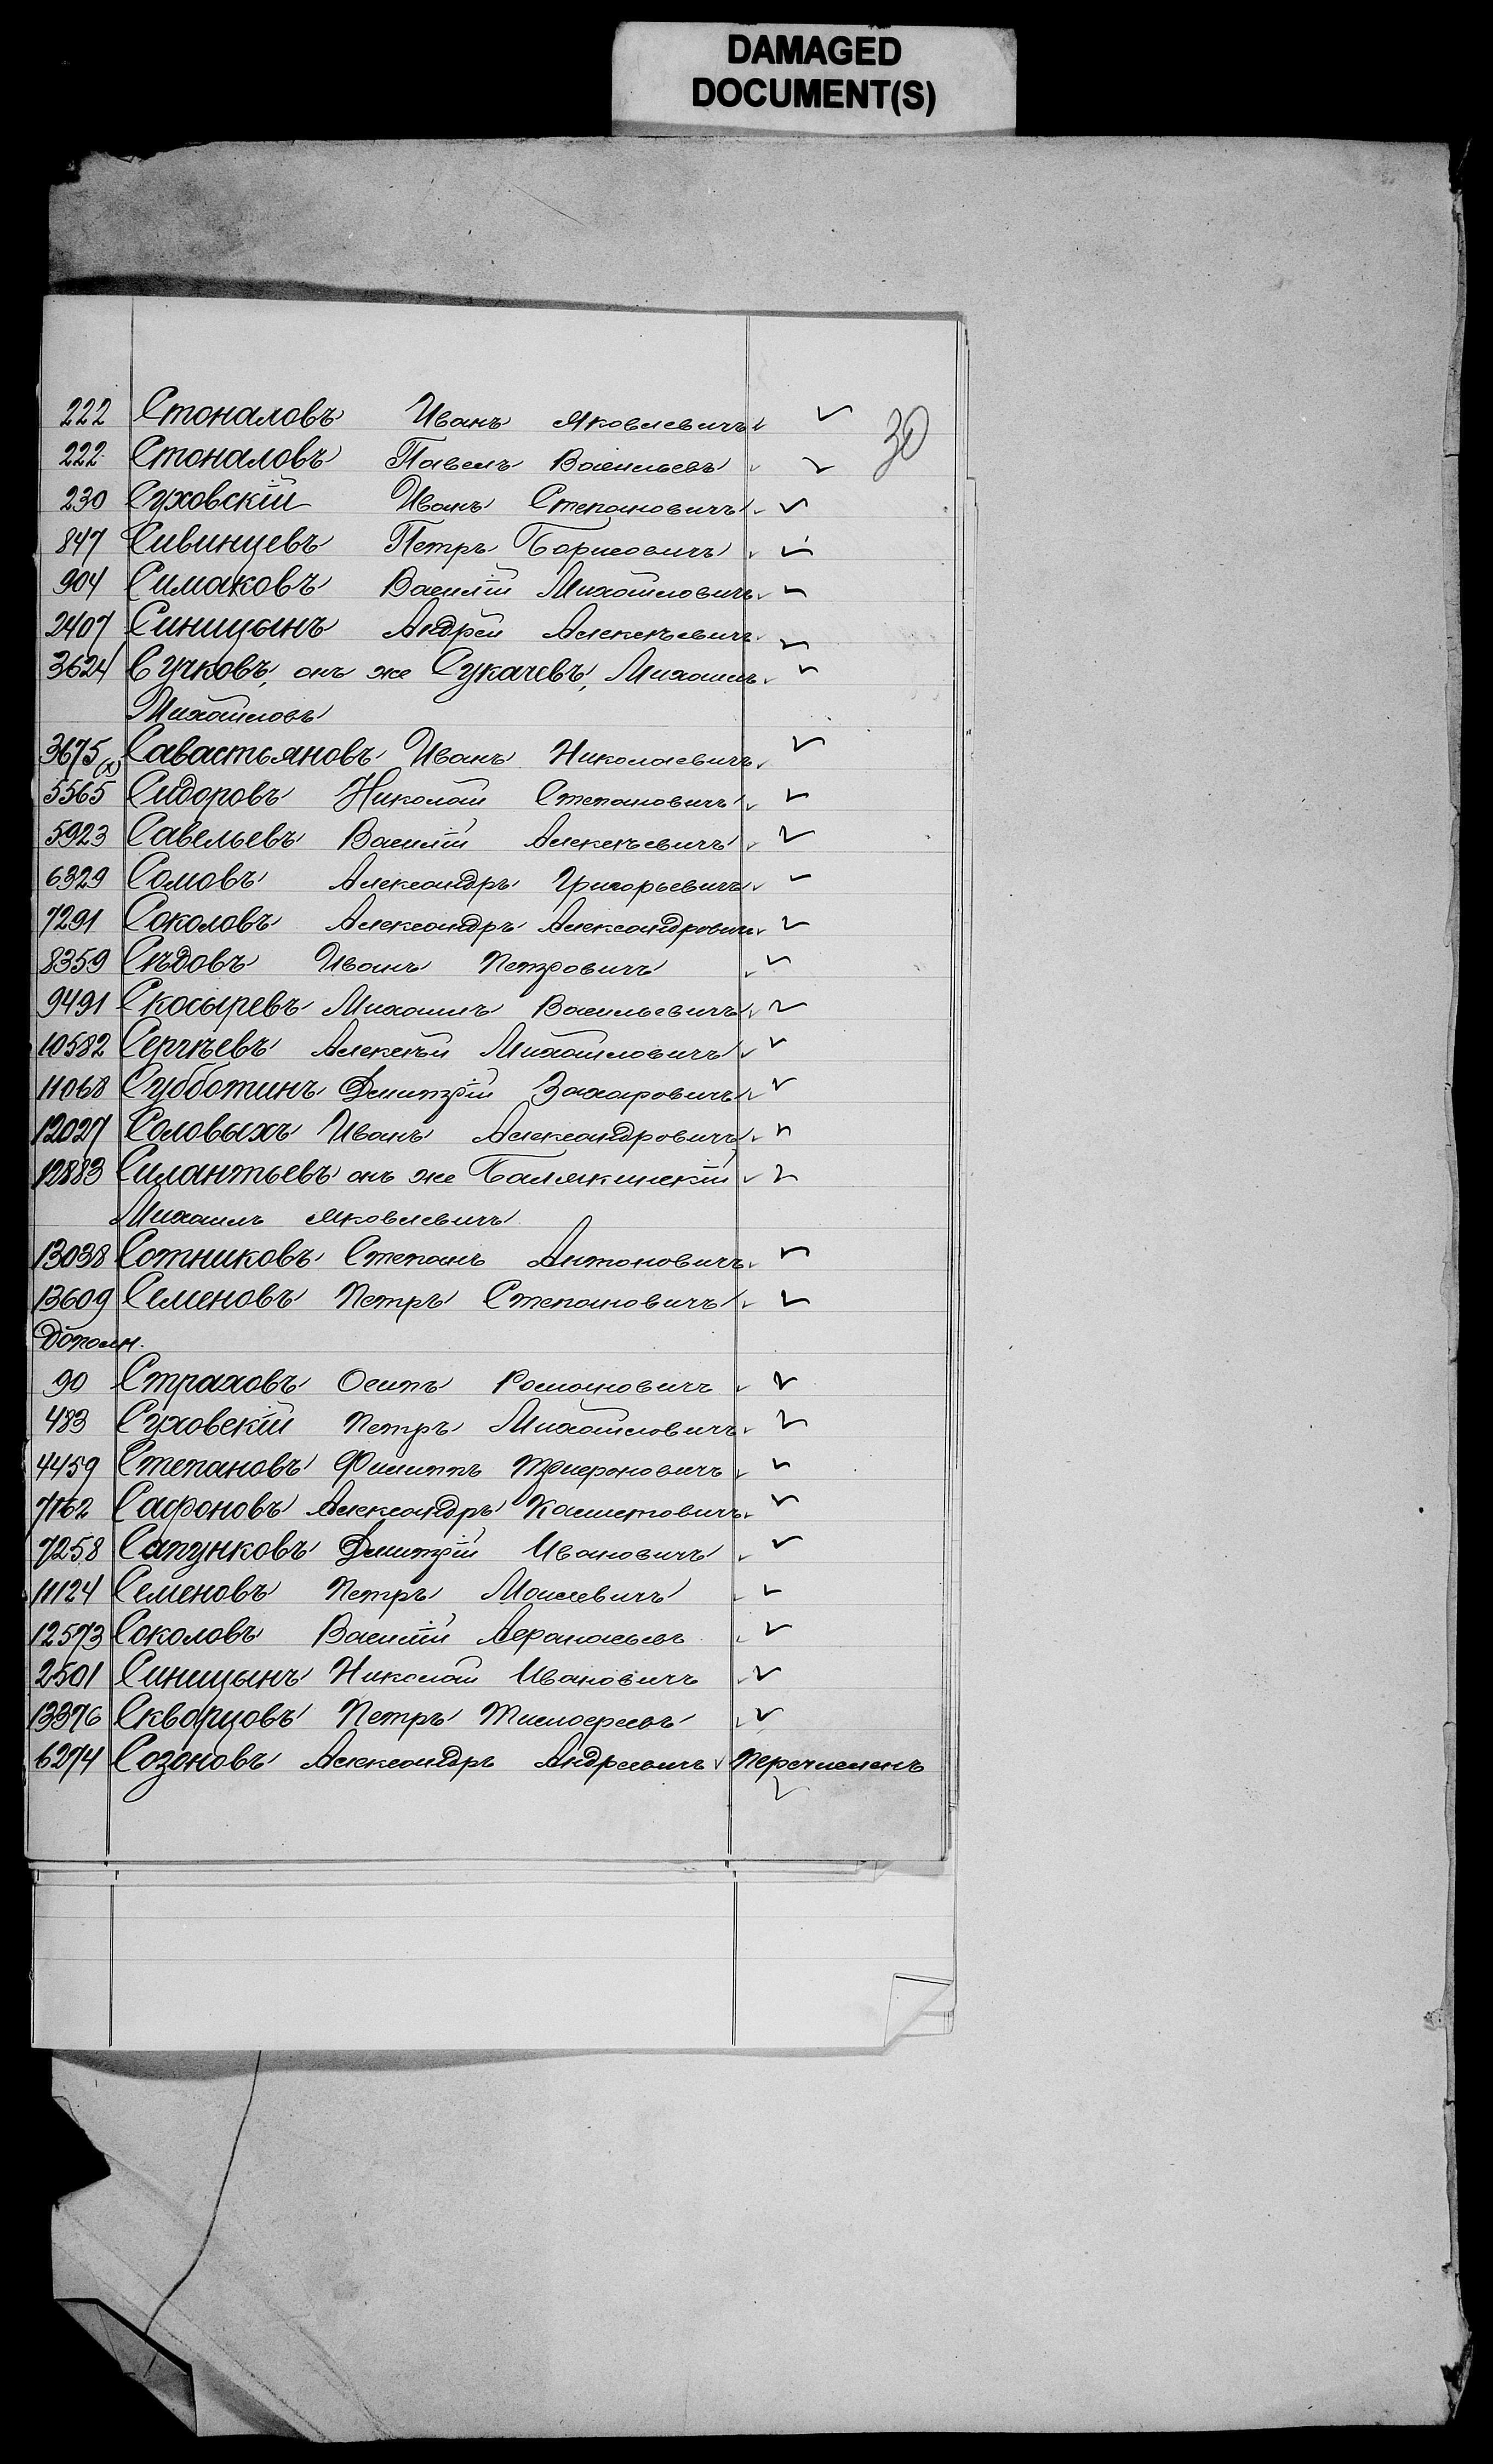 DAMAGED
DOCUMENT(S)
30
222 Стоналовъ Иванъ Яковлевичъ
222 Стоналовъ Павелъ Васильевъ
230 Суховскій Иванъ Степановичъ
847 Сивинцевъ Петръ Борисовичъ
904 Симаковъ Василій Михайловичъ
2407 Синицынъ Андрей Алексѣевичъ
3624 Сучковъ, онъ же Сукачевъ, Михаилъ
Михайловъ
3675 (х) Савастьяновъ Иванъ Николаевичъ
5565 Сидоровъ Николай Степановичъ
5923 Савельевъ Василій Алексѣевичъ
6329 Сомовъ Александръ Григорьевичъ
7291 Соколовъ Александръ Александрович
8359 Сѣдовъ Иванъ Петровичъ
9491 Скосыревъ Михаилъ Васильевичъ
10582 Сергѣевъ Алексѣй Михайловичъ
11068 Субботинъ Дмитрій Захаровичъ
12027 Соловыхъ Иванъ Александровичъ
12883 Силантьевъ онъ же Балякинскій
Михаилъ Яковлевичъ
13038 Сотниковъ Степанъ Антоновичъ
13609 Семеновъ Петръ Степановичъ
Дополн.
90 Страховъ Осипъ Романовичъ
483 Суховскій Петръ Михайловичъ
4459 Степановъ Филиппъ
7162 Сафоновъ Александръ
7258 Сапунковъ Дмитрій Ивановичъ
11124 Семеновъ Петръ Моисевичъ
12573 Соколовъ Василій Афанасьевъ
2501 Синицынъ Николай Ивановичъ
13376 Скварцовъ Петръ Тимофеевъ
6274 Созоновъ Александръ Андреевичъ перечисленъ